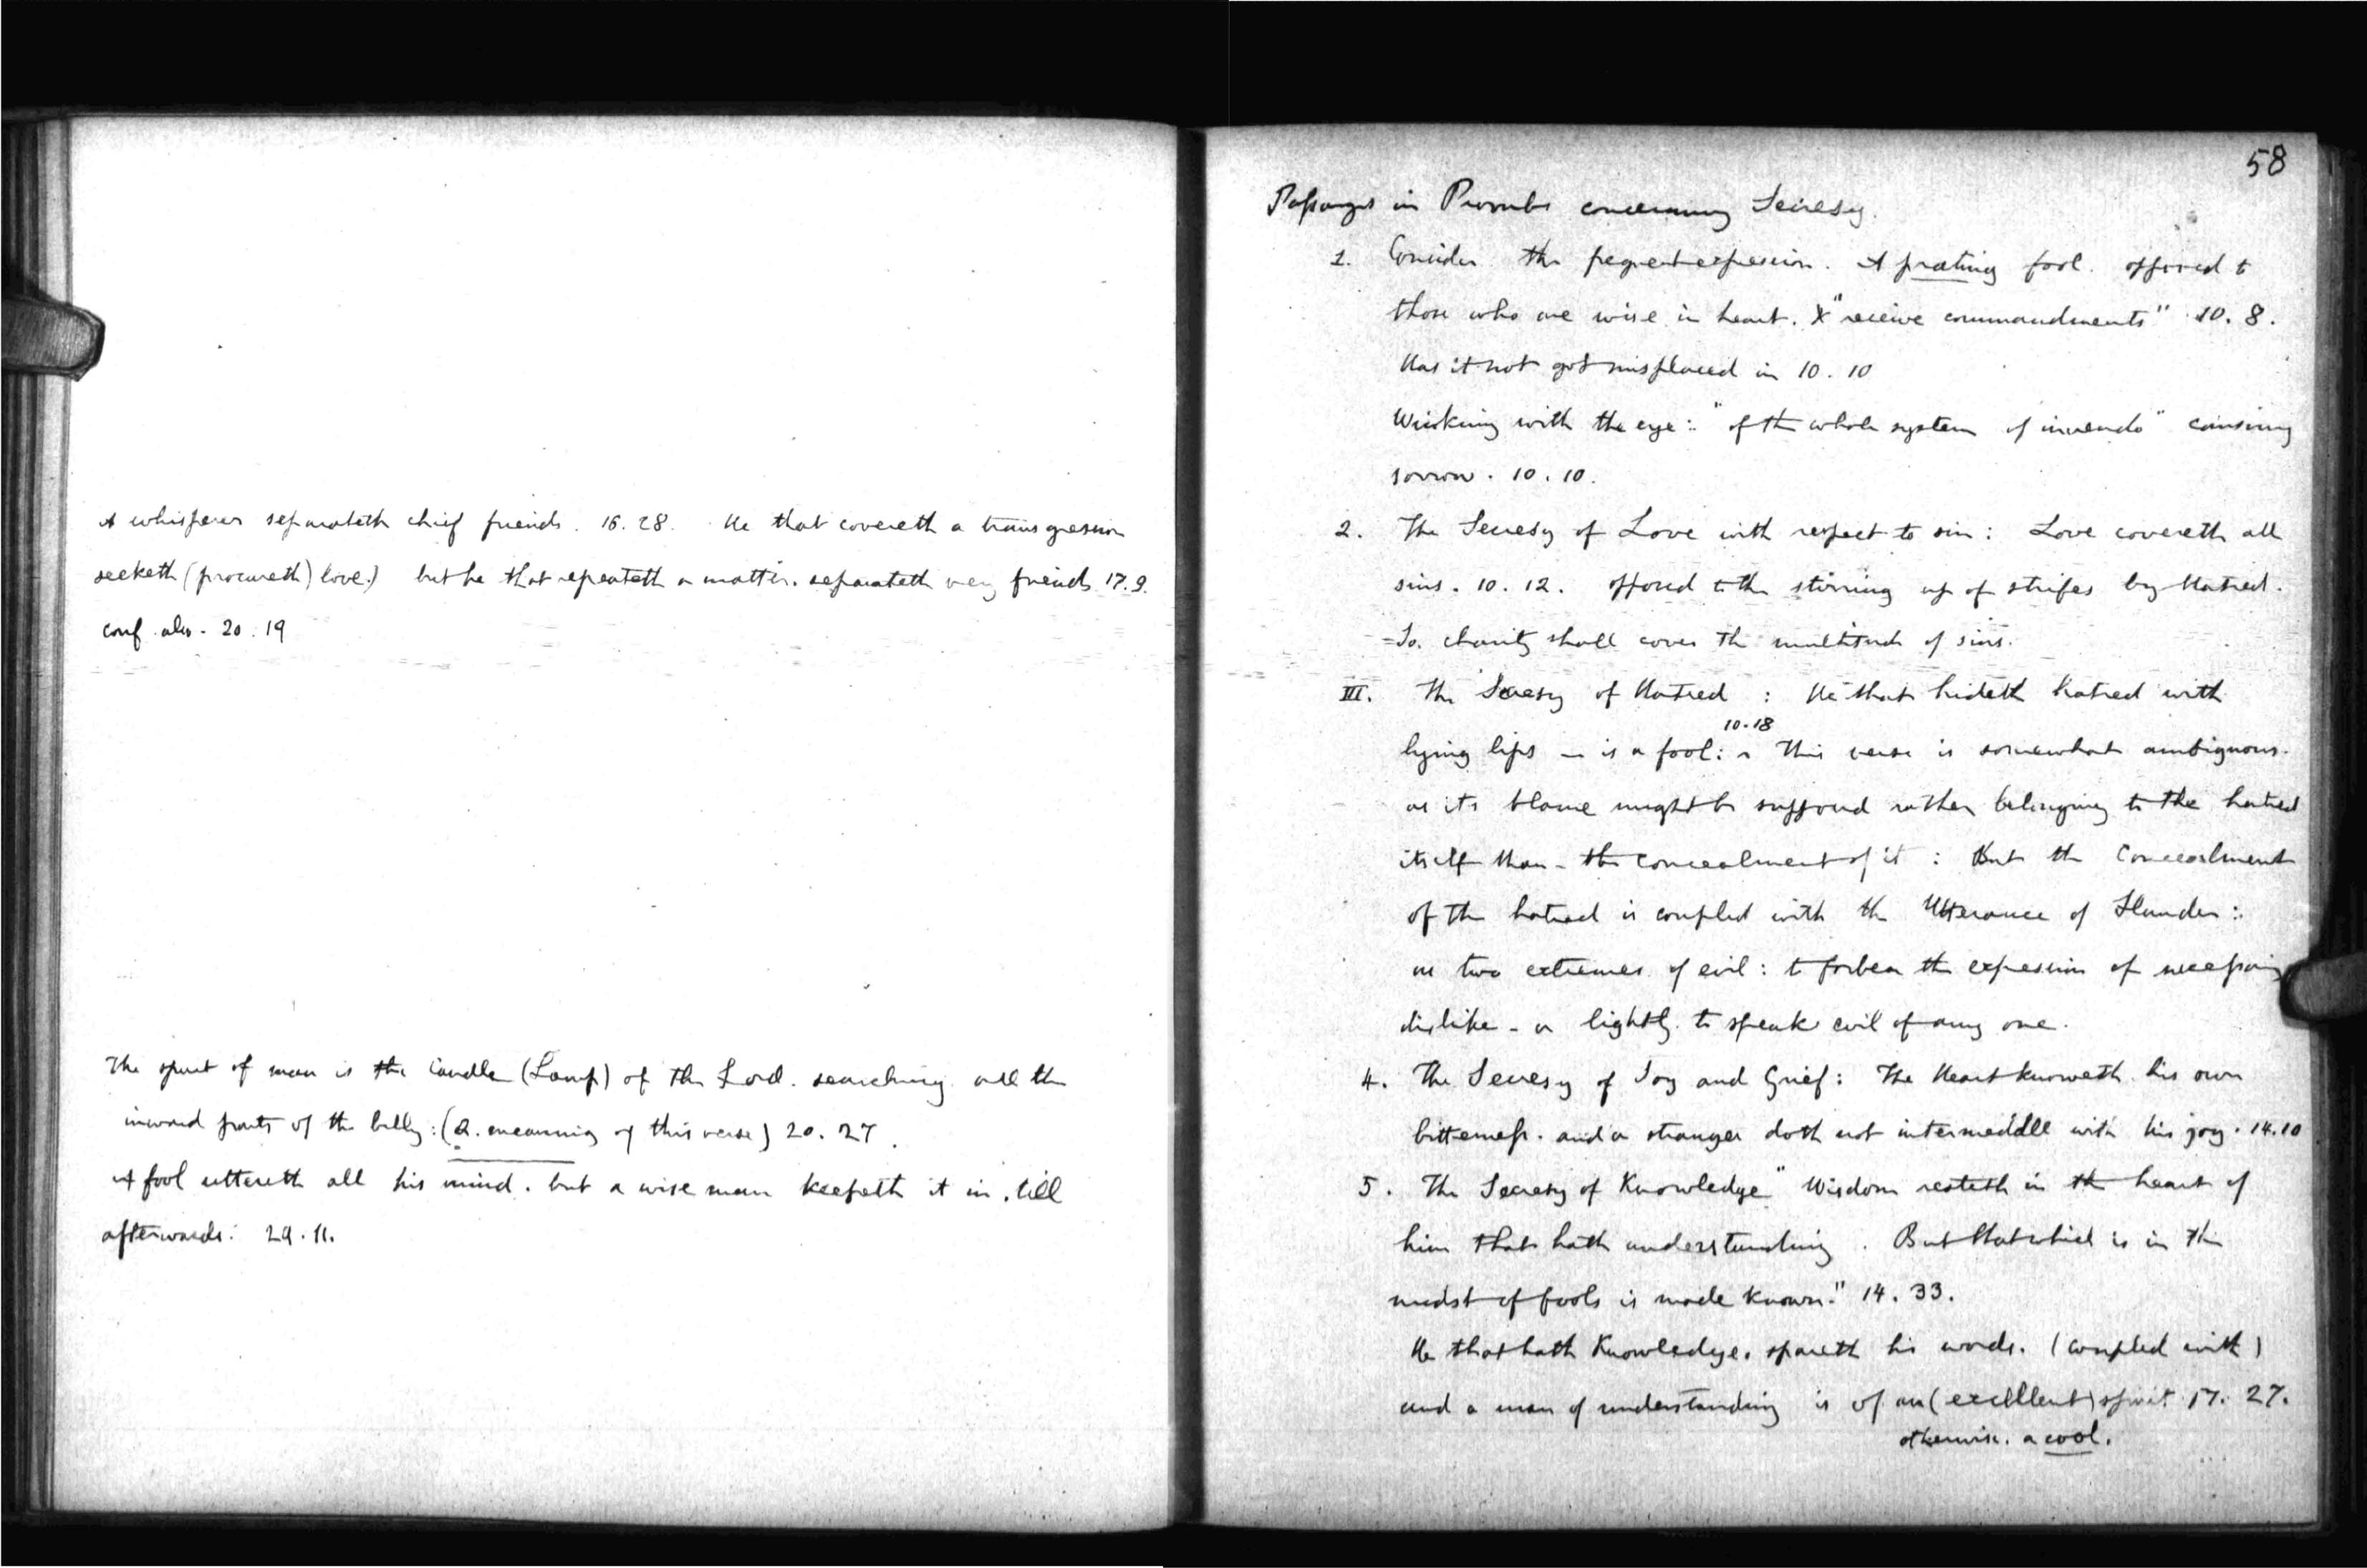 A whisperer separateth chief friends. 16.28. He that covereth a transgression
seeketh (procureth) love.) but he that repeateth a matter. separateth very friends. 17.9.
conf. also. 20.19
The spirit of man is the candle (Lamp) of the Lord. searching all the
inward parts of the belly: (Q. meaning of this verse) 20.27.
A fool uttereth all his mind. but a wise man keepeth it in, till
afterwards: 29.11.
58
Passages in Proverbs concerning Secresy.
1. Consider the frequent expression. A prating fool. opposed to
those who are wise in heart. & "receive commandments" 10.8.
Has it not got misplaced in 10.10
Winking with the eye: "of the whole system of inuendo" causing
sorrow. 10.10.
2. The Secresy of Love with respect to sin: Love covereth all
sins. 10.12. opposed to the stirring up of strifes by Hatred.
=So. charity shall cover the multitude of sins.
III. The Secresy of Hatred : He that hideth hatred with
10.18
lying lips — is a fool: ^ This verse is somewhat ambiguous.
as its blame might be supposed rather belonging to the hatred
itself than - the concealment of it : But the Concealment
of the hatred is coupled with the Utterance of Slander:
as two extremes of evil: to forbear the expression of necessary
dislike - or lightly. to speak evil of any one.
4. The Secresy of Joy and Grief: The Heart knoweth his own
bitterness. and a stranger doth not intermeddle with his joy. 14.10
5. The Secresy of Knowledge "Wisdom resteth in the heart of
him that hath understanding. But that which is in the
midst of fools is made known." 14.33.
He that hath Knowledge. spareth his words. (coupled with)
and a man of understanding is of an (excellent) spirit. 17.27.
otherwise. a cool.